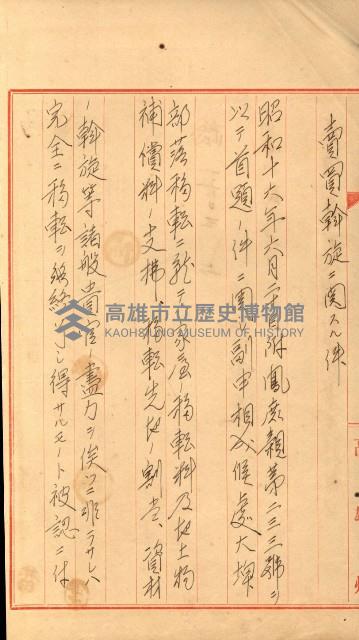 賣買斡旋ニ関スル件
昭和十六年六月二十日附鳳庶親第二三三號ヲ
以テ首題ノ件ニ関シ副申相成候處大坪
部落移転ニ就テハ家屋移転料及地上物
補償料ノ支拂、移転先地ノ割当、資材
ノ斡旋等諸般貴官ノ盡力ヲ俟ツニ非ラサレハ
完全ニ移転ヲ終了シ得サルモート被認ニ付
高雄市立歷史博物館
KAOHSIUNG MUSEUM OF HISTORY
高